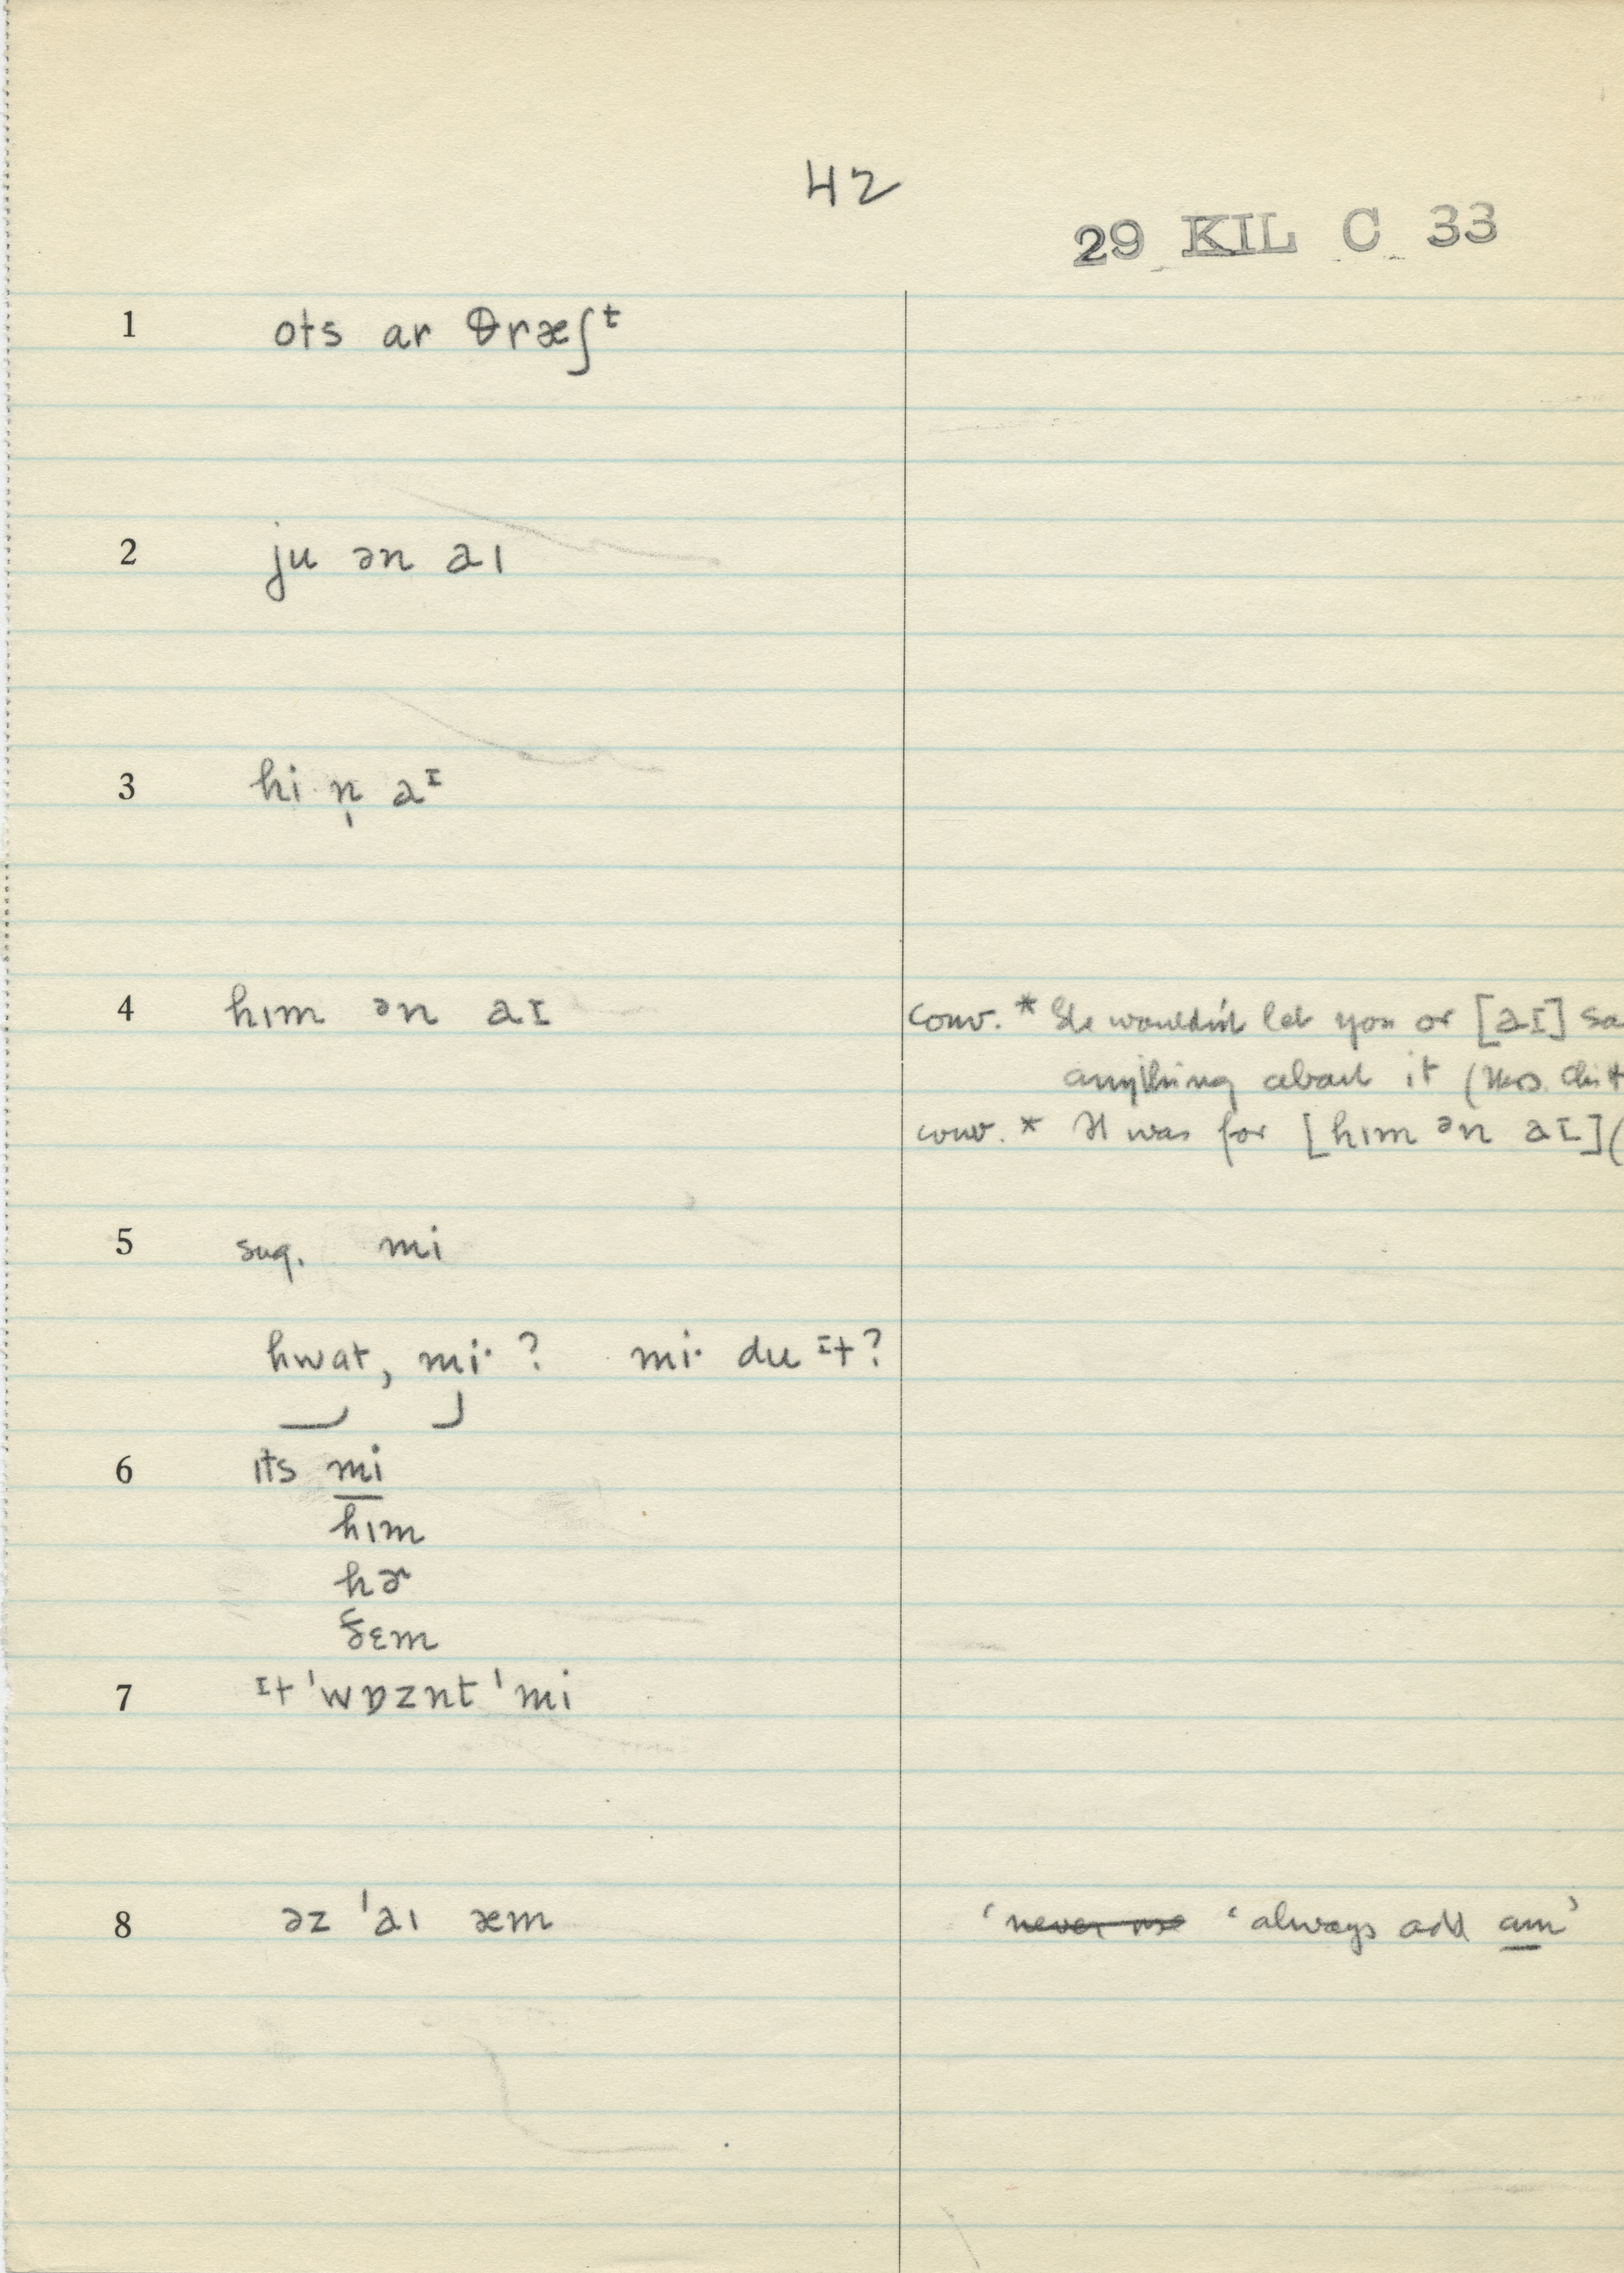 42
29 KIL C 33
1 ots ar θræʃᵗ
2 ju ən aɪ
3 hi n̩ aᴵ
4 hɪm ən aɪ
conv. * She wouldn't let you or [aɪ] sa
anything about it (Mrs.
conv. * It was for [hɪm ən aɪ] (
5 sug. mi
hwat, mi· ? mi· du ɪt?
6 ɪts mi
hɪm
hɚ
ðɛm
7 ɪt ˈwɒznt ˈmi
8 əz ˈaɪ æm
‘never me ‘always add am’